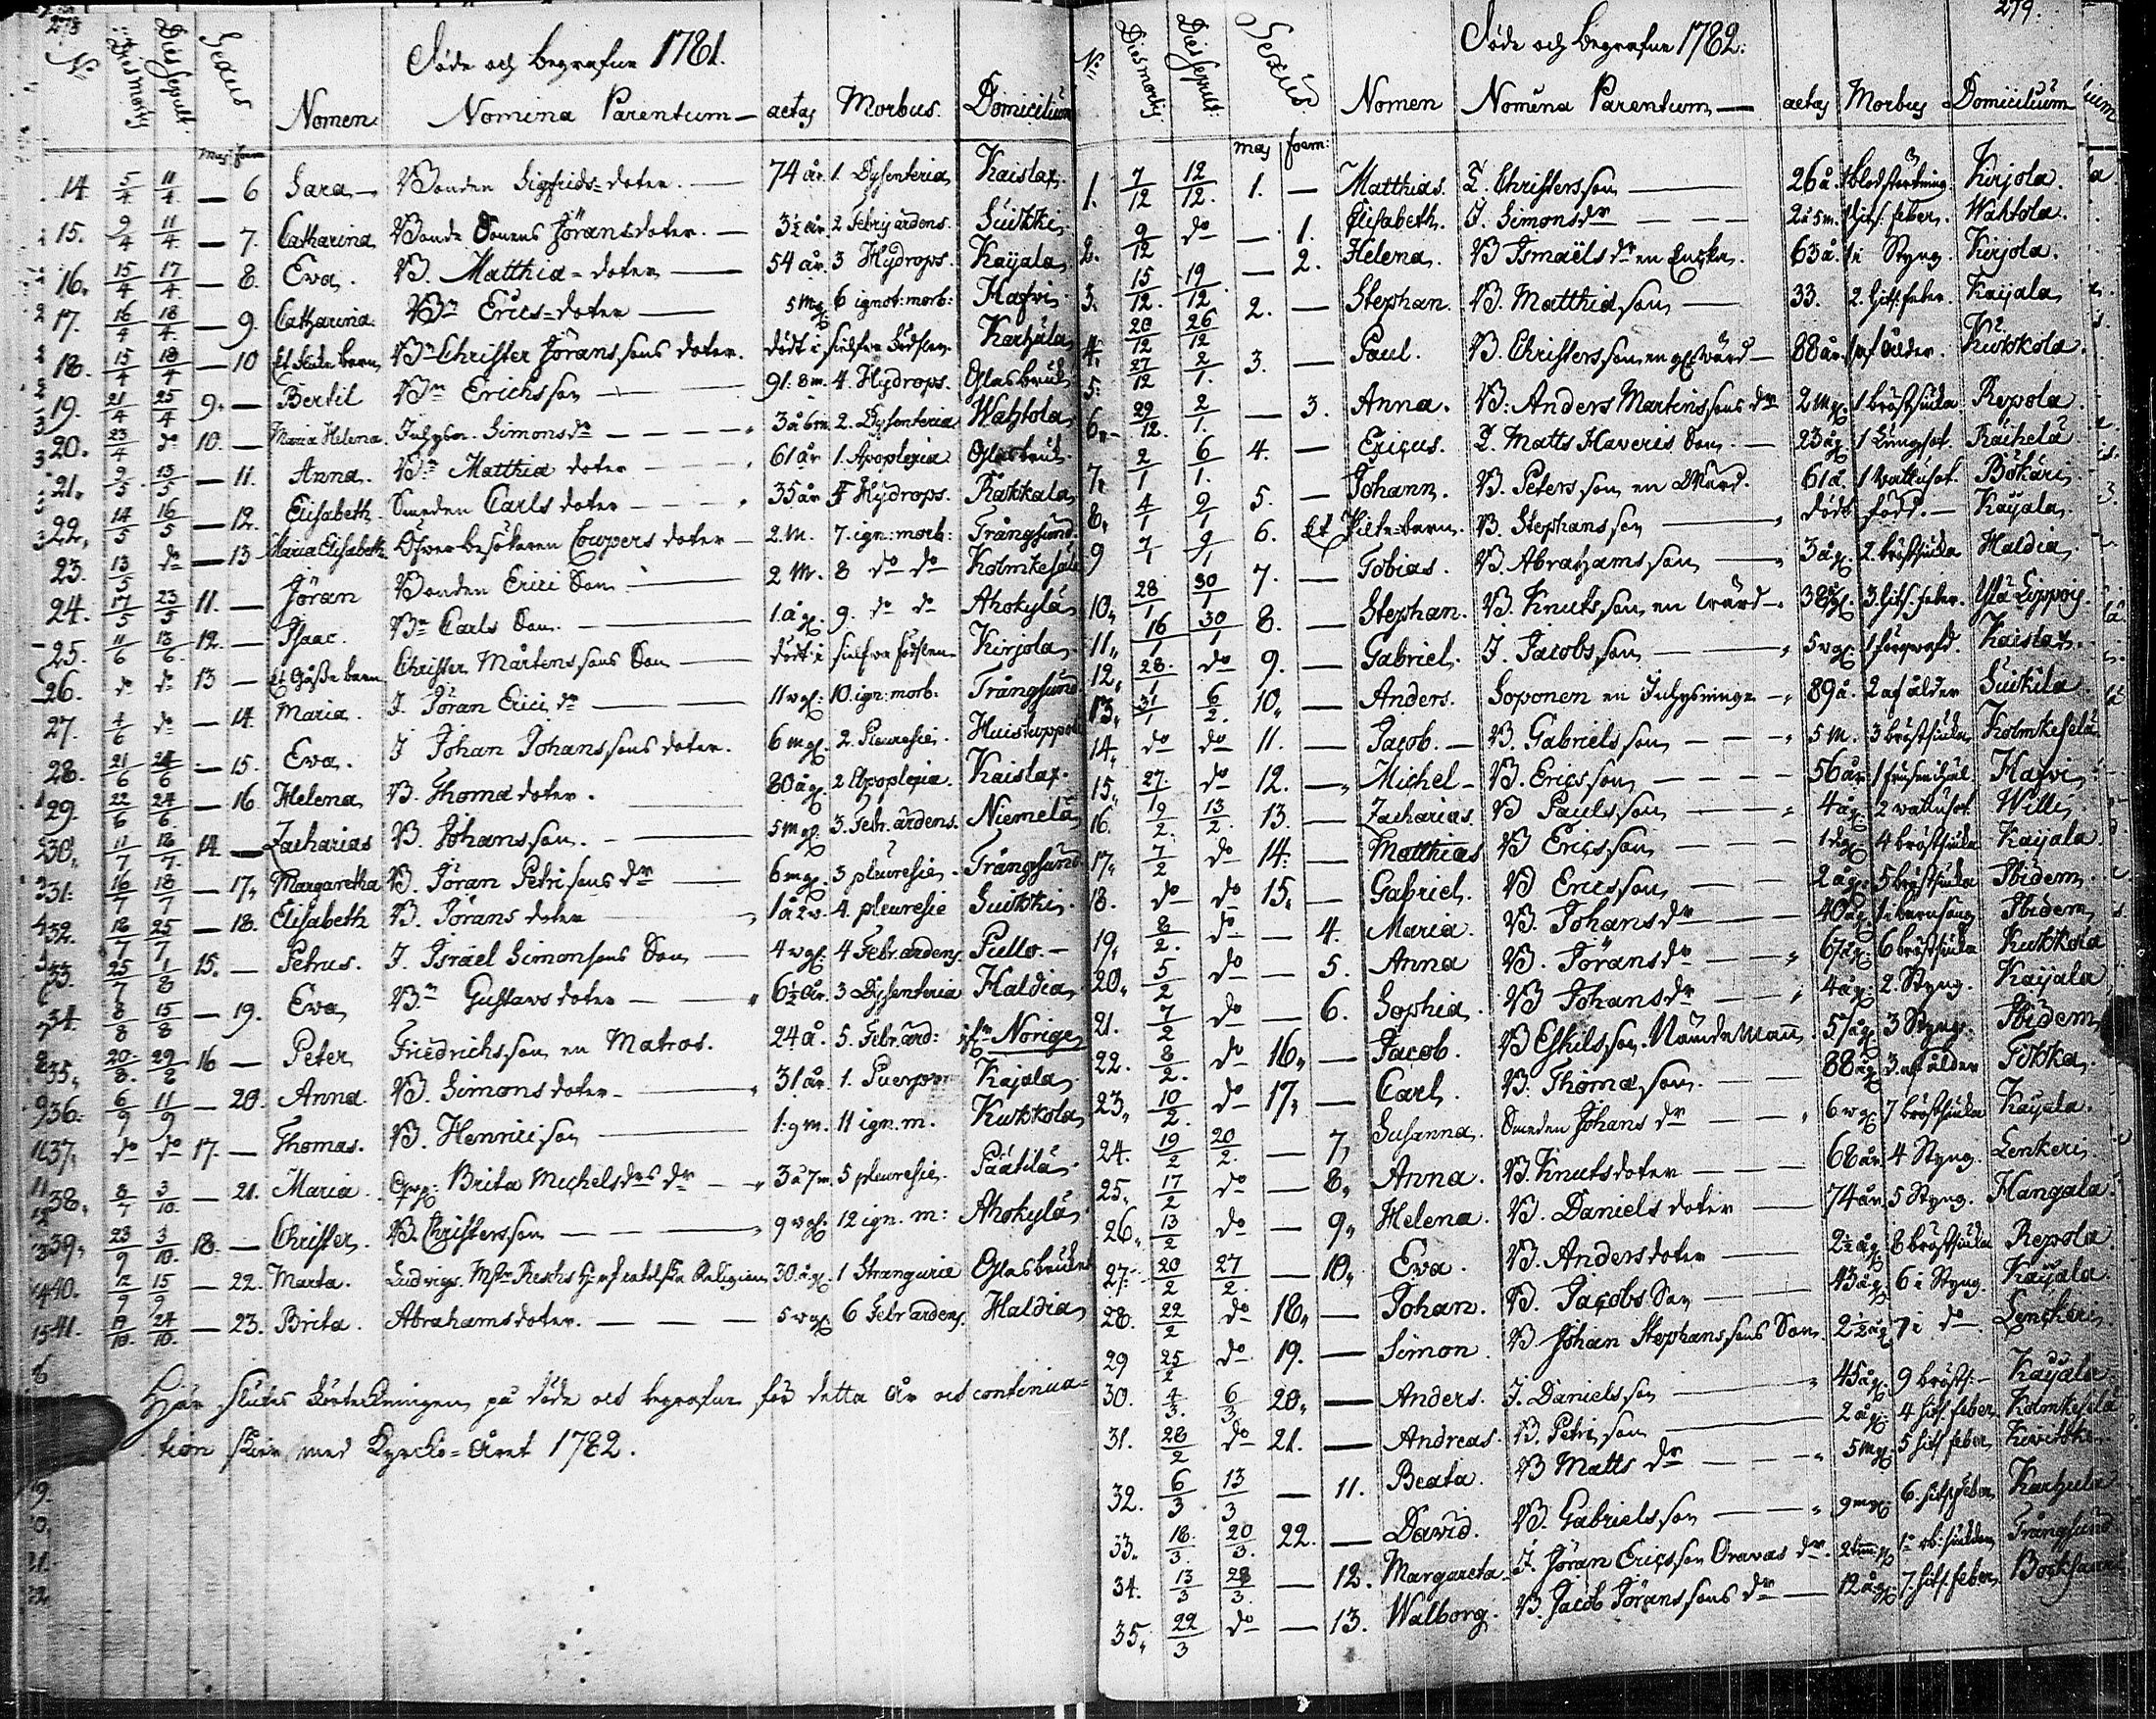 278
Döde och Begrafne 1781.
No Dies mortis Dies sepult: Sexus Nomen Nomina Parentum — aetas Morbus. Domicilium
mas foem
14 5/4 11/4 — 6 Sara — Bonden Sigfrids=doter. — 74 år. 1. Dysenteria Kaislax.
15. 9/4 11/4 — 7. Catharina Bonde Sonens Jöransdoter. — 3½ år. 2 Febris ardens. Suikki
16. 15/4 17/4 — 8. Eva. B. Matthiæ=doter — 54 år. 3 Hydrops. Kaijala
17. 16/4 18/4 — 9. Catharina. Bn Erics=doter — 5 m. 6 ignot: morb: Hafvi
18. 15/4 18/4 — 10 Bn Christer Jöranssons doter. dödt i sielfva födslen Karhula
19. 21/4 25/4 9. — Bertil Bn Erichsson — 91. 8m. 4. Hydrops. Glasbruk
20. 23/4 do 10. — Maria Helena. Simonsdr — 3 å 6 m. 2. Dysenteria Wahtola
21. 9/5 13/5 — 11. Anna. Bn Matthiæ doter — 61 år 1. Apoplexia Glasbruk
22. 14/5 16/5 — 12. Elisabeth. Smeden Carls doter — 35 år. 5 Hydrops. Rakkala
23. 13/5 do — 13 Maria Elisabeth Öfverbesökaren Coupers doter — 2. M. 7. ign: morb: Trångsund
24. 17/5 23/5 11. — Jöran Bonden Erici Son — 2 M. 8 do do Kolmkesälä
25. 11/6 13/6 12. — Isaac. Bn Carls Son — 1 å gl. 9. do do Ahokylä
26. do do 13 — et Gåsse barn Christer Mårtenssons Son — dödt i sielfva födslen Kirjola
27. 4/6 do — 14. Maria. I. Jöran Erici dr — 11 v gl: 10. ign: morb: Trångsund
28. 21/6 24/6 — 15. Eva. I Johan Johanssons doter. 6 m gl. 2. Pleuresie. Huistuppola
29. 22/6 24/6 — 16 Helena B. Thomæ doter. — 80 å gl. 2 Apoplexia. Kaislax.
30. 11/7 18/7 14. — Zacharias B. Johansson. — 5 m gl. 3. Febr. ardens. Niemelä
31. 16/7 18/7 — 17. Margaretha B. Jöran Petrisons dr — 6 m gl. 3 pleuresie. Trångsund
32. 18/7 25/7 — 18. Elisabeth B. Jörans doter — 1 å 2 v. 4. pleuresie Suikki.
33. 25/7 1/8 15. — Petrus. I. Israel Simonsons Son — 4 v gl: 4 Febr. ardens. Pullo. —
34. 8/8 15/8 — 19. Eva Bn Gustavs doter — 6½ år. 3 Dysenteria Haldia
35. 20/8. 29/8 16 — Peter Friedrichsson en Matros. 24 å. 5. Febr. ard: ifrn Norige
36. 6/9 11/9 — 20. Anna. B. Simons doter — 31 år. 1. Puerper Kajala
37. do do 17. — Thomas. B. Henricison — 1. 9 m. 11 ign. m. Kukkola
38. 8/7 3/10. — 21. Maria. Brita Michelsdrs dr — 3 å 7 m. 5 pleuresie. Päätilä
39. 23/9 3/10. 18. — Christer. B. Christersson — 9 v gl. 12 ign. m: Ahokylä
40. 12/9 15/9 — 22. Marta. Ludvigs Religion 30. å gl. 1 Strangurie Glasbruket
41. 19/10. 24/10. — 23. Brita. Abrahamsdoter. — 5 v gl. 6 Febr ardens. Haldia
Här slutes förtekningen på döde och begrafne för detta år och continua=
tion sker med Kyrcko=Året 1782.
279.
Döde och Begrafne 1782.
No Dies mortis Dies sepult: Sexus Nomen Nomina Parentum — aetas Morbus Domicilium
mas foem:
1. 7/12 12/12. 1. — Matthias. I. Christersson — 26 å. 1 blodstörtning. Kirjola.
2. 9/12 do — 1. Elisabeth. I. Simonsdr — 2 å 5 m. 1 hits. feber. Wahtola.
3. 15/12. 19/12 — 2. Helena. B Ismaëlsdr en Encka. 63 å. 1 i Styng. Kirjola.
4. 20/12 26/12 2. — Stephan. B. Matthiæson — 33. 2. hits. feber. Kaijala
5. 27/12 2/1. 3. — Paul. B. Christersson en gl. wärd — 88 år. 1 af ålder. Kukkola.
6. 29/12. 2/1. — 3. Anna. B. Anders Martinssons dr 2 m gl. 1 bröstsiuka Repola
7. 2/1 6/1. 4. — Ericus. I. Matts Haveris Son — 23 å gl. 1 Lungsot. Raihelä
8. 4/1 9/1 5. — Johann. B. Petersson en Wärd. 61 å. 1 Vattusot. Bökari
9 7/1 9/1 6. et Pilte=barn. B. Stephansson — dödt född. — Kayala.
10. 28/1 30/1 7. — Tobias. B. Abrahamsson — 3 å gl. 2. bröstsiuka Haldia
11. 16/1 30/1 8. — Stephan. B. Knutsson en wärd — 38 å gl. 3. hits. feber. Yla Lippois
12. 28./1 do 9. — Gabriel. I. Jacobsson — 5 v gl. 1 förqvafd. Kaislax.
13. 31/1 6/2. 10. — Anders. Soponen en Inhysninge — 89 å. 2 af ålder Suikila
14. do do 11. — Jacob. — B. Gabrielsson — 5 M. 3 bröstsiuka Kolmkeselä
15. 27./1 do 12. — Michel — B. Ericsson — 56 år. 1 frusen ihjäl. Hafvi
16. 9/2. 13/2. 13. — Zacharias. B Paulsson — 4 å gl. 2 vattusot. Wille
17. 7/2 do 14. — Matthias B Ericsson — 1 d gl. 4 bröstsiuka Kayala
18. do do 15. — Gabriel. B Ericsson — 2 å gl. 5 bröstsiuka Ibidem.
19. 8/2. do — 4. Maria. B. Johansdr — 40 å gl. 1 i barnsäng Ibidem
20. 5/2 do — 5. Anna B. Jöransdr — 67 å gl. 6 bröstsiuka Kukkola
21. 7/2 do — 6. Sophia. B Johansdr — 4 å gl. 2. Styng. Kaijala
22. 8/2. do 16. — Jacob. B Eskilsson. Nämdeman. 57 å gl. 3 Styng. Ibidem
23. 10/2. do 17. — Carl. B. Thomæson. — 88 å gl. 3. af ålder Tokka
24. 19/2 20/2. — 7. Susanna. Smeden Johans dr — 6 v gl. 7 bröstsiuka Kayala.
25. 17/2 do — 8. Anna. B. Knutsdoter — 68 år. 4 Styng. Lenkeri
26. 13/2 do — 9. Helena. B. Daniels doter — 74 år. 5 Styng. Hangala
27. 20/2 27/2. — 10. Eva. B. Andersdoter — 2½ å gl. 8 bröstsiuka Repola
28. 22/2 do 18. — Johan. B. Jacobs Son — 43 å gl. 6 i Styng. Kaijala
29 25/2 do 19. — Simon. B Johan Stephanssons Son. 2½ å gl. 7 i do Lenkeri
30. 4/3. 6/3 20. — Anders. I. Danielsson — 45 å gl. 9 bröst: — Kayala
31. 28/2 do 21. — Andreas. B. Petrisson — 2 å gl. 4 hits. feber Kolmkeselä
32. 6/3 13/3 — 11. Beata. B Matts dr — 5 m gl. 5 hits. feber
33. 18./3. 20/3. 22. — David. B. Gabrielsson — 9 m gl. 6. hits. feber Karhula
34. 13/3 28/3. — 12. Margareta. I. Jöran Ericsson Oravas dr. Trångsund
35. 22/3 do — 13. Walborg. B. Jacob Jöranssons dr — 12 å gl. 7. hits. feber